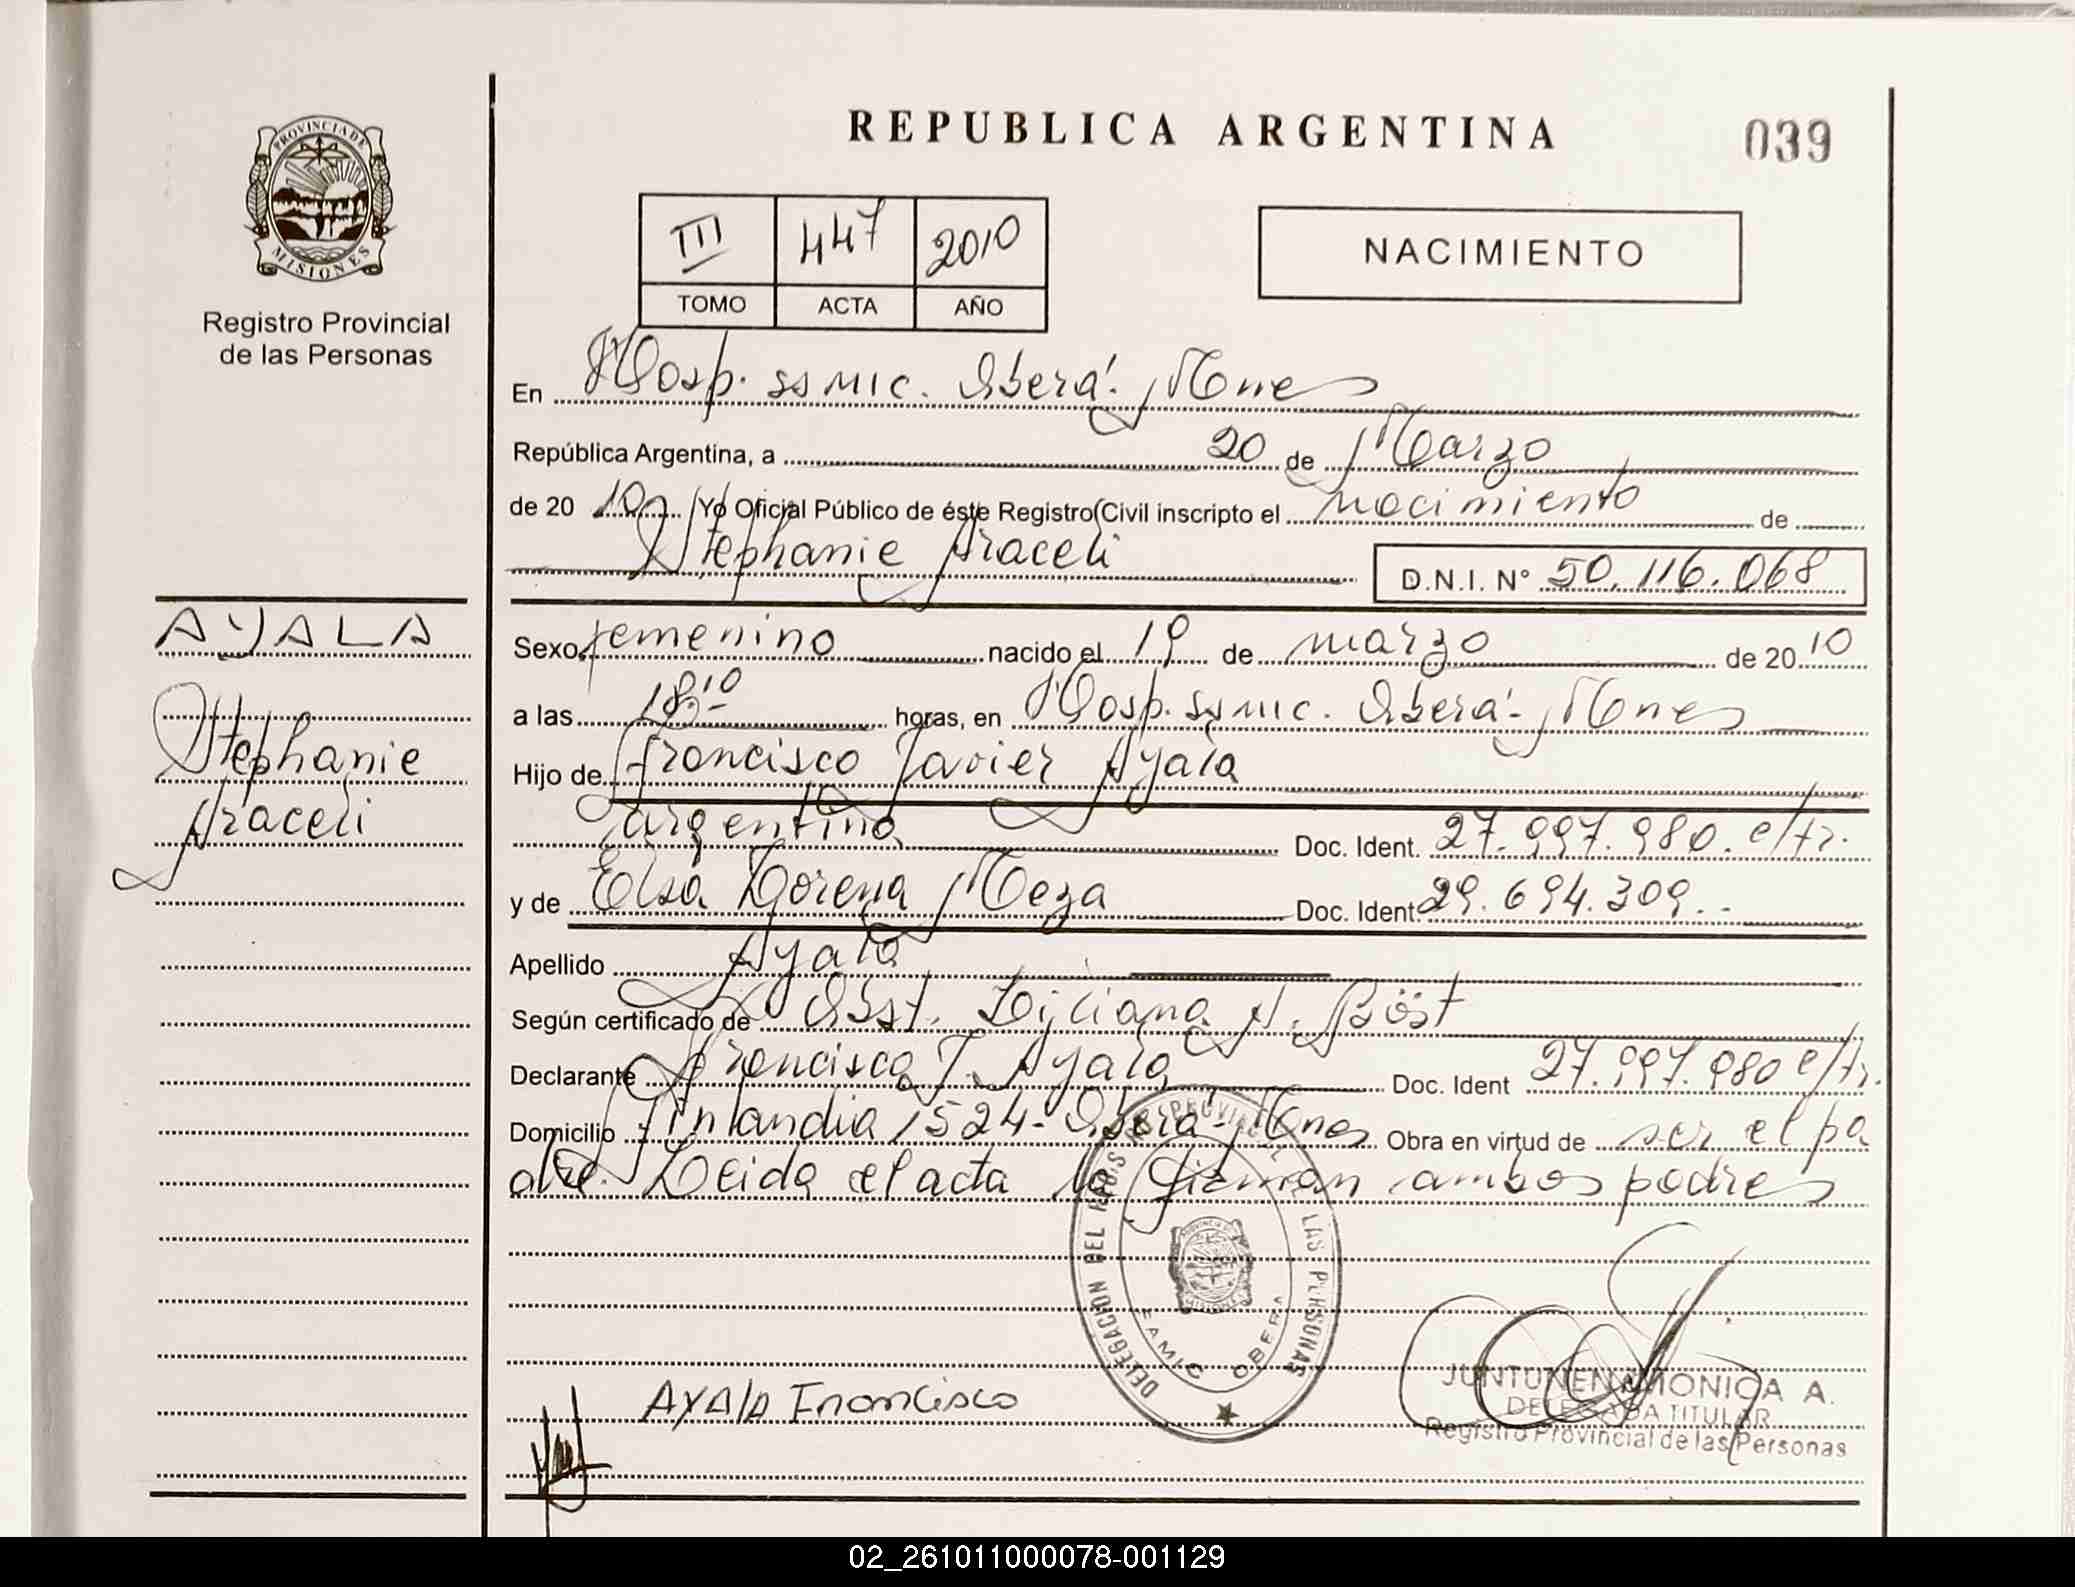 REPUBLICA ARGENTINA
039
PROVINCIA DE
MISIONES
Registro Provincial
de las Personas
III 447 2010
TOMO ACTA AÑO
NACIMIENTO
En Hosp. ssmic. Oberá - Mnes
República Argentina, a 20 de Marzo
de 20 10 Yo Oficial Público de éste Registro Civil inscripto el nacimiento de
Stephanie Araceli D.N.I. N° 50.116.068
AYALA
Stephanie
Araceli
Sexo femenino nacido el 19 de marzo de 20 10
a las 18:10 horas, en Hosp. ssmic. Oberá - Mnes
Hijo de Francisco Javier Ayala
argentino Doc. Ident. 27.997.980. e/tr.
y de Elsa Lorena Meza Doc. Ident. 29.694.309.-
Apellido Ayala
Según certificado de Obst. A. Böst
Declarante Francisco J. Ayala Doc. Ident 27.997.980 e/tr.
Domicilio Finlandia 1524 - Oberá - Mnes Obra en virtud de ser el pa
dre. Leida el acta la firman ambos padres
DELEGACION DEL REGISTRO PROVINCIAL DE LAS PERSONAS
SAMIC OBERA
AYALA Francisco
JUNTUNEN MONICA A.
DELEGADA TITULAR
Registro Provincial de las Personas
02_261011000078-001129